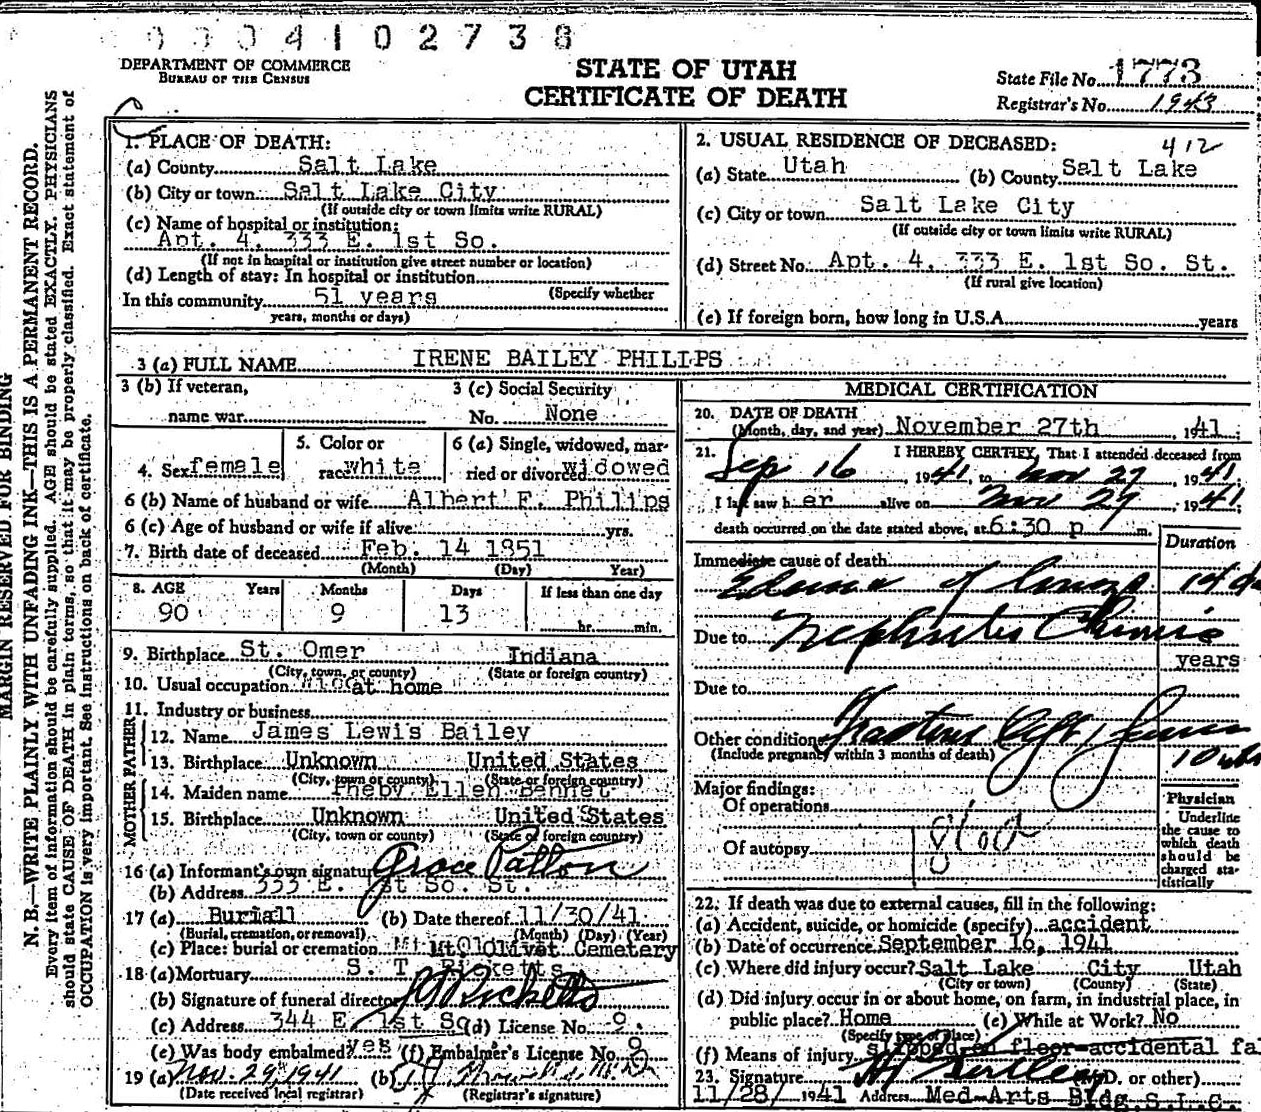 0 0 0 4 1 0 2 7 3 8
DEPARTMENT OF COMMERCE
BUREAU OF THE CENSUS
STATE OF UTAH
CERTIFICATE OF DEATH
State File No. 1773
Registrar's No. 1943
1. PLACE OF DEATH:
(a) County Salt Lake
(b) City or town Salt Lake City
(If outside city or town limits write RURAL)
(c) Name of hospital or institution:
Apt. 4, 333 E. 1st So.
(If not in hospital or institution give street number or location)
(d) Length of stay: In hospital or institution
(Specify whether
In this community 51 years
years, months or days)
2. USUAL RESIDENCE OF DECEASED: 412
(a) State Utah (b) County Salt Lake
(c) City or town Salt Lake City
(If outside city or town limits write RURAL)
(d) Street No. Apt. 4, 333 E. 1st So. St.
(If rural give location)
(e) If foreign born, how long in U.S.A. years
3 (a) FULL NAME IRENE BAILEY PHILIPS
3 (b) If veteran,
name war
3 (c) Social Security
No. None
4. Sex female
5. Color or
race white
6 (a) Single, widowed, mar-
ried or divorced widowed
6 (b) Name of husband or wife Albert F. Philips
6 (c) Age of husband or wife if alive yrs.
7. Birth date of deceased Feb. 14 1851
(Month) (Day) Year)
8. AGE Years Months Days If less than one day
90 9 13 hr. min.
9. Birthplace St. Omer Indiana
(City, town, or county) (State or foreign country)
10. Usual occupation at home
11. Industry or business
FATHER
12. Name James Lewis Bailey
13. Birthplace Unknown United States
(City, town or county) (State or foreign country)
MOTHER
14. Maiden name Pheby Ellen Bennet
15. Birthplace Unknown United States
(City, town or county) (State or foreign country)
16 (a) Informant's own signature Grace Patton
(b) Address 333 E. 1st So. St.
17 (a) Buriall (b) Date thereof 11/30/41
(Burial, cremation, or removal) (Month) (Day) (Year)
(c) Place: burial or cremation Mt. Olivet Cemetery
18 (a) Mortuary S. T. Ricketts
(b) Signature of funeral director Ricketts
(c) Address 344 E. 1st So (d) License No. 9.
(e) Was body embalmed? yes (f) Embalmer's License No.
19 (a) Nov. 29, 1941 (b)
(Date received local registrar) (Registrar's signature)
MEDICAL CERTIFICATION
20. DATE OF DEATH
(Month, day, and year) November 27th, 1941.
21. I HEREBY CERTIFY, That I attended deceased from
Sep 16 1941, to Nov 27 1941.
I last saw her alive on Nov 27 1941
death occurred on the date stated above, at 6:30 p m.
Duration
Immediate cause of death
Edema of lungs 14 da
Due to Nephritis Chronic
years
Due to
Other conditions Fracture left femur
(Include pregnancy within 3 months of death) 10 wks
Major findings:
Of operations
Of autopsy
Physician
Underline
the cause to
which death
should be
charged sta-
tistically
22. If death was due to external causes, fill in the following:
(a) Accident, suicide, or homicide (specify) accident
(b) Date of occurrence September 16, 1941
(c) Where did injury occur? Salt Lake City Utah
(City or town) (County) (State)
(d) Did injury occur in or about home, on farm, in industrial place, in
public place? Home (e) While at Work? No
(Specify type of place)
(f) Means of injury slipped on floor-accidental fa
23. Signature (M.D. or other)
11/28/ 1941 Address Med-Arts Bldg. S.L.C.
MARGIN RESERVED FOR BINDING
N. B.—WRITE PLAINLY WITH UNFADING INK—THIS IS A PERMANENT RECORD.
Every item of information should be carefully supplied. AGE should be stated EXACTLY. PHYSICIANS
should state CAUSE OF DEATH in plain terms, so that it may be properly classified. Exact statement of
OCCUPATION is very important. See instructions on back of certificate.